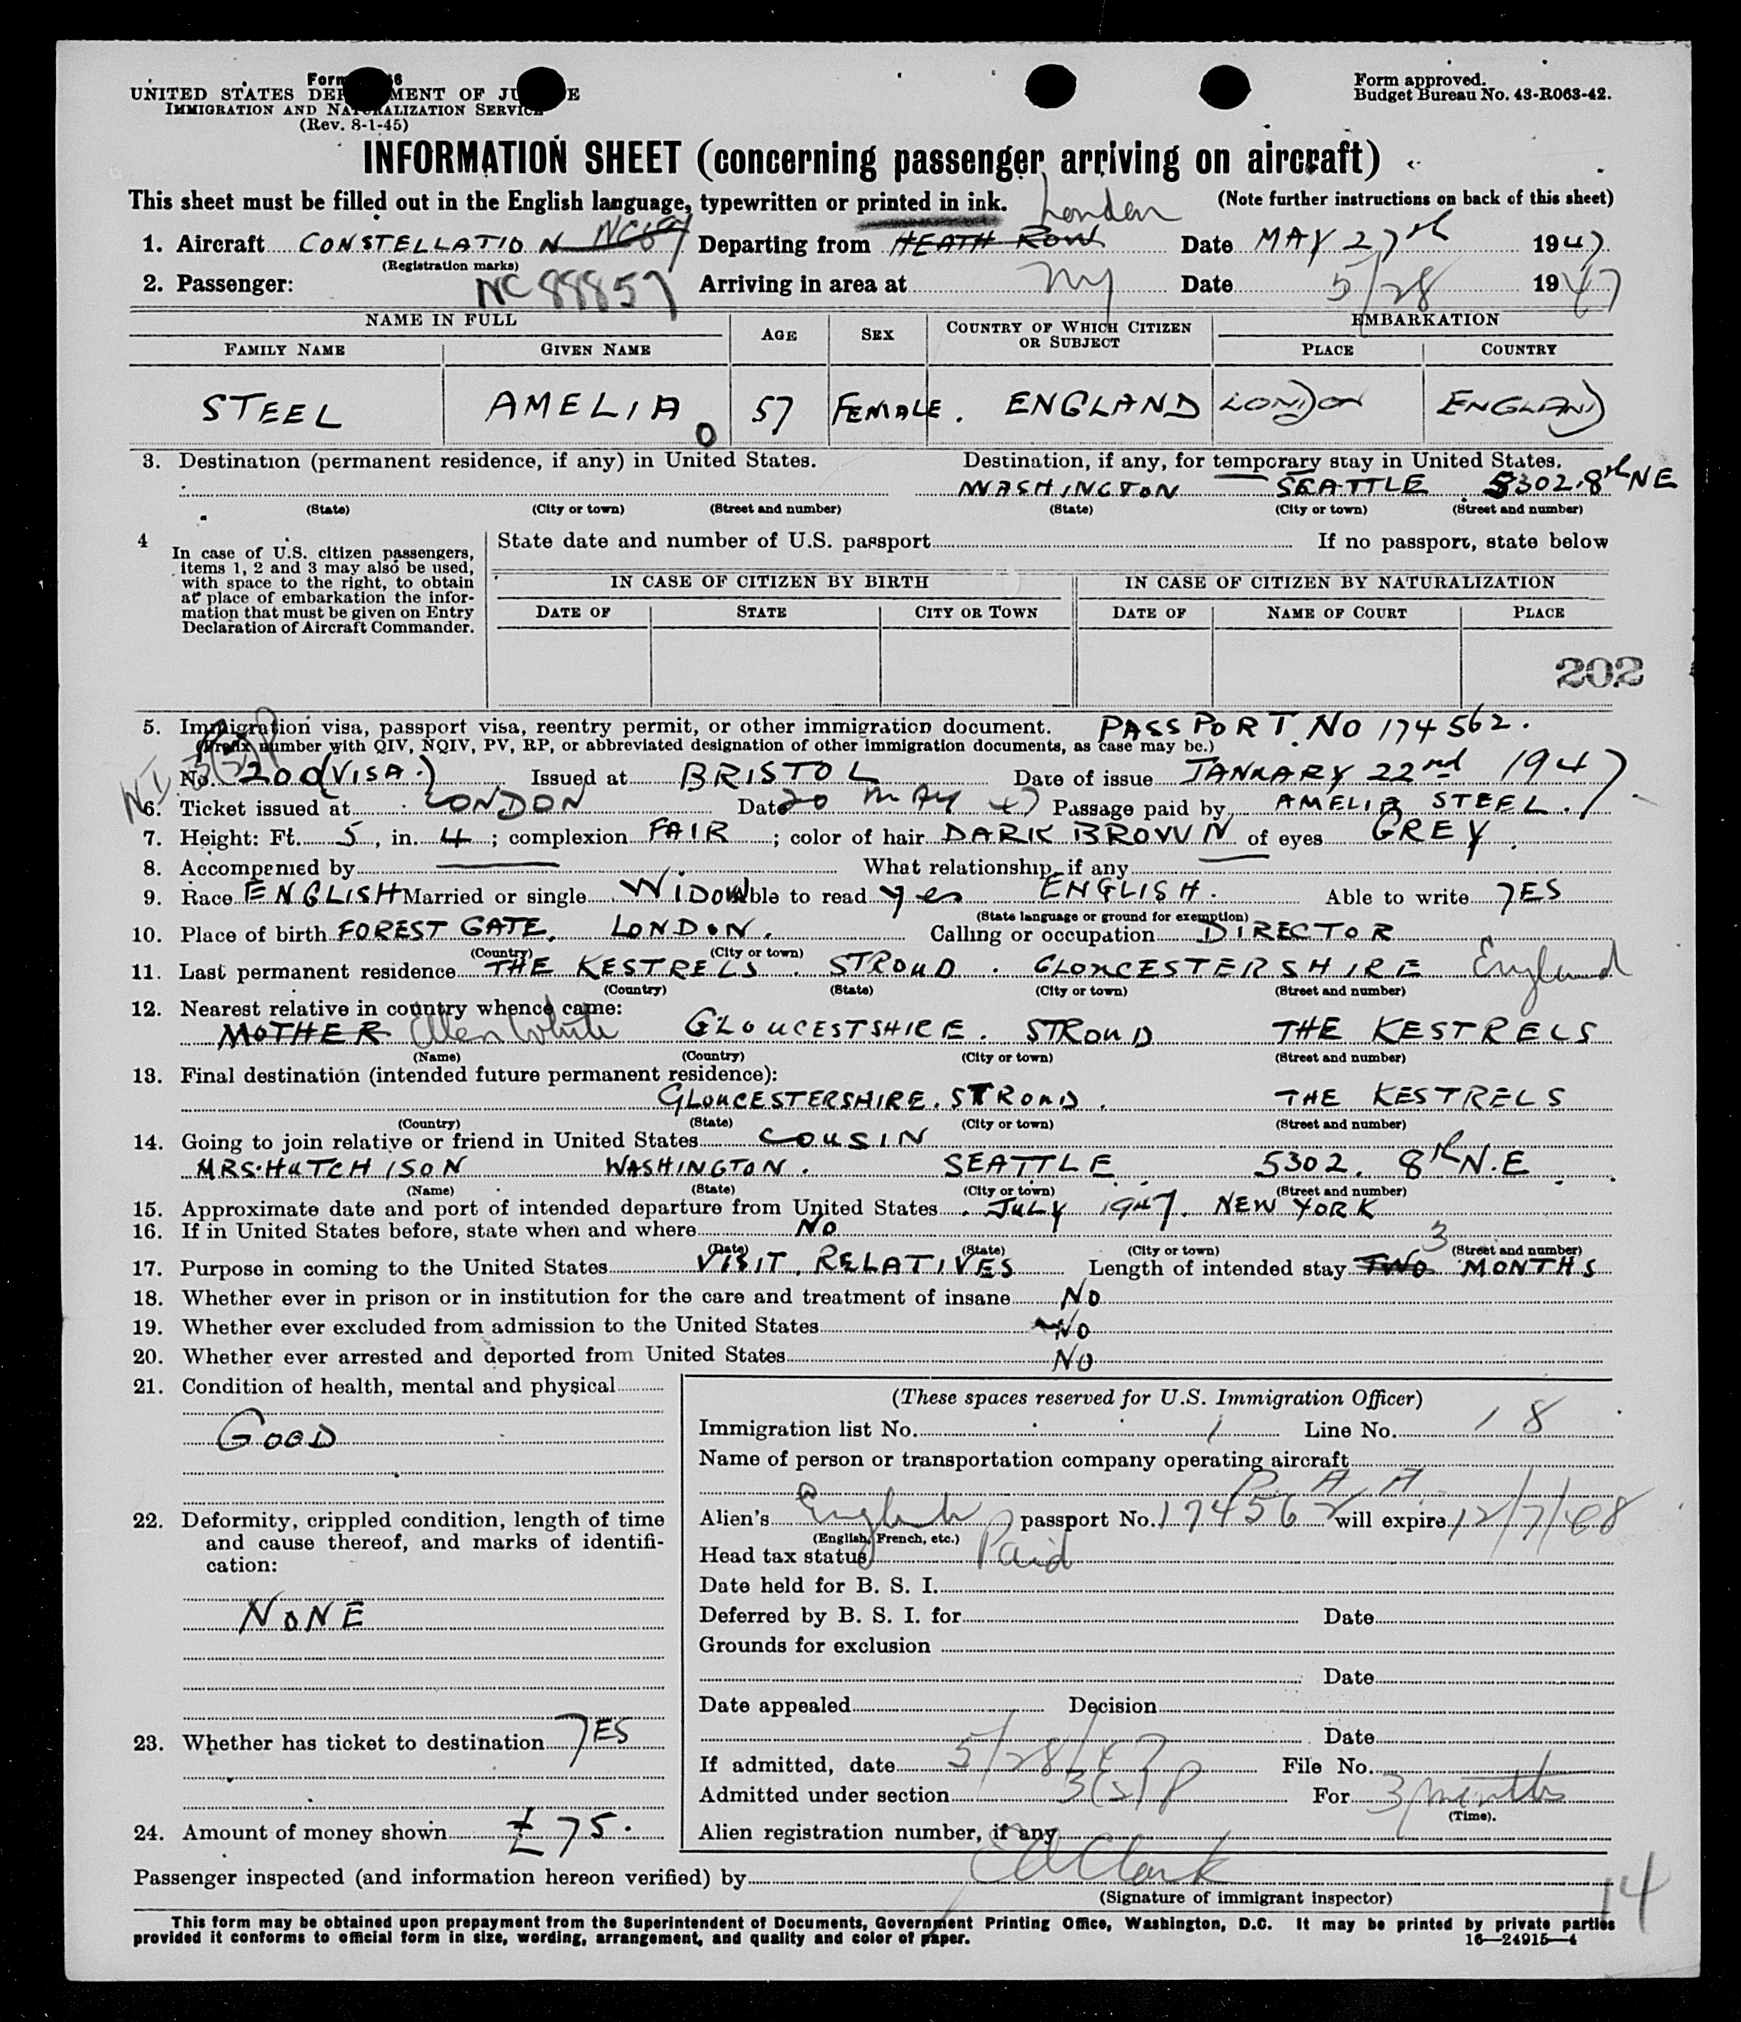 Form
UNITED STATES DEPARTMENT OF JUSTICE
IMMIGRATION AND NATURALIZATION SERVICE
(Rev. 8-1-45)
Form approved.
Budget Bureau No. 43-R063-42.
INFORMATION SHEET (concerning passenger arriving on aircraft)
This sheet must be filled out in the English language, typewritten or printed in ink. London (Note further instructions on back of this sheet)
1. Aircraft CONSTELLATION Departing from HEATH ROW Date MAY 27th 1947.
(Registration marks)
2. Passenger: NC 88857 Arriving in area at NY Date 5/28 1947
NAME IN FULL AGE SEX COUNTRY OF WHICH CITIZEN OR SUBJECT EMBARKATION
FAMILY NAME GIVEN NAME PLACE COUNTRY
STEEL AMELIA 57 FEMALE. ENGLAND LONDON ENGLAND
0
3. Destination (permanent residence, if any) in United States. Destination, if any, for temporary stay in United States.
WASHINGTON SEATTLE 5302. 8th NE
(State) (City or town) (Street and number) (State) (City or town) (Street and number)
4 In case of U.S. citizen passengers, items 1, 2 and 3 may also be used, with space to the right, to obtain at place of embarkation the information that must be given on Entry Declaration of Aircraft Commander.
State date and number of U.S. passport If no passport, state below
IN CASE OF CITIZEN BY BIRTH IN CASE OF CITIZEN BY NATURALIZATION
DATE OF STATE CITY OR TOWN DATE OF NAME OF COURT PLACE
202
5. Immigration visa, passport visa, reentry permit, or other immigration document. PASSPORT. NO 174562.
(Prefix number with QIV, NQIV, PV, RP, or abbreviated designation of other immigration documents, as case may be.)
No. 200 (VISA.) Issued at BRISTOL Date of issue JANUARY 22nd 1947
6. Ticket issued at LONDON Date 20 MAY 47 Passage paid by AMELIA STEEL.
7. Height: Ft. 5, in. 4; complexion FAIR; color of hair DARK BROWN of eyes GREY
8. Accompanied by What relationship, if any
9. Race ENGLISH Married or single WIDOW Able to read yes ENGLISH. Able to write YES
(State language or ground for exemption)
10. Place of birth FOREST GATE. LONDON. Calling or occupation DIRECTOR
(Country) (City or town)
11. Last permanent residence THE KESTRELS. STROUD. GLOUCESTERSHIRE England
(Country) (State) (City or town) (Street and number)
12. Nearest relative in country whence came:
MOTHER Ellen White GLOUCESTSHIRE. STROUD THE KESTRELS
(Name) (Country) (City or town) (Street and number)
13. Final destination (intended future permanent residence):
GLOUCESTERSHIRE. STROUD. THE KESTRELS
(Country) (State) (City or town) (Street and number)
14. Going to join relative or friend in United States COUSIN
MRS. HUTCHISON WASHINGTON. SEATTLE 5302. 8th N.E
(Name) (State) (City or town) (Street and number)
15. Approximate date and port of intended departure from United States. JULY 1947. NEW YORK
16. If in United States before, state when and where NO
(Date) (State) (City or town) (Street and number)
17. Purpose in coming to the United States VISIT. RELATIVES Length of intended stay TWO 3 MONTHS
18. Whether ever in prison or in institution for the care and treatment of insane NO
19. Whether ever excluded from admission to the United States NO
20. Whether ever arrested and deported from United States NO
21. Condition of health, mental and physical
GOOD
22. Deformity, crippled condition, length of time and cause thereof, and marks of identification:
NONE
23. Whether has ticket to destination YES
24. Amount of money shown £75.
(These spaces reserved for U.S. Immigration Officer)
Immigration list No. 1 Line No. 18
Name of person or transportation company operating aircraft
P.A.A.
Alien's English passport No. 174562 will expire 12/7/48
(English, French, etc.)
Head tax status Paid
Date held for B. S. I.
Deferred by B. S. I. for Date
Grounds for exclusion
Date
Date appealed Decision
Date
If admitted, date 5/28/47 File No.
Admitted under section 3(2) P For 3 months
(Time).
Alien registration number, if any
Passenger inspected (and information hereon verified) by Ed Clark
(Signature of immigrant inspector)
14
This form may be obtained upon prepayment from the Superintendent of Documents, Government Printing Office, Washington, D.C. It may be printed by private parties
provided it conforms to official form in size, wording, arrangement, and quality and color of paper. 16—24915-4